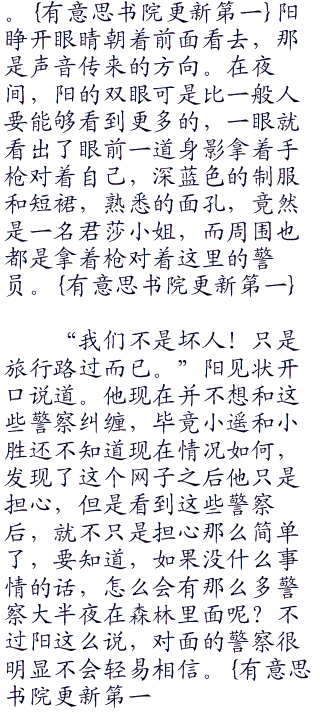 。{有意思书院更新第一}阳
睁开眼睛朝着前面看去，那
是声音传来的方向。在夜
间，阳的双眼可是比一般人
要能够看到更多的，一眼就
看出了眼前一道身影拿着手
枪对着自己，深蓝色的制服
和短裙，熟悉的面孔，竟然
是一名君莎小姐，而周围也
都是拿着枪对着这里的警
员。{有意思书院更新第一}
“我们不是坏人！只是
旅行路过而已。”阳见状开
口说道。他现在并不想和这
些警察纠缠，毕竟小遥和小
胜还不知道现在情况如何，
发现了这个网子之后他只是
担心，但是看到这些警察
后，就不只是担心那么简单
了，要知道，如果没什么事
情的话，怎么会有那么多警
察大半夜在森林里面呢？不
过阳这么说，对面的警察很
明显不会轻易相信。{有意思
书院更新第一